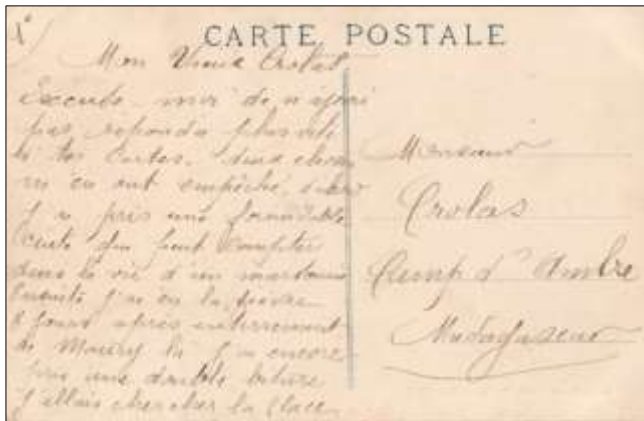 CARTE POSTALE
Mon Vieux Crolas
Excuse moi de n'avoir
pas repondu plus vite
à tes Cartes. deux choses
m'en ont empêché. d'abord
J'ai pris une formidable
cuite qui peut compter
dans la vie d'un
Ensuite j'ai eu la fièvre
8 jours après enterrement
de Maury là j'ai encore
pris une double biture
J'allais chercher la glace
Monsieur
Crolas
Camp d'Ambre
Madagascar